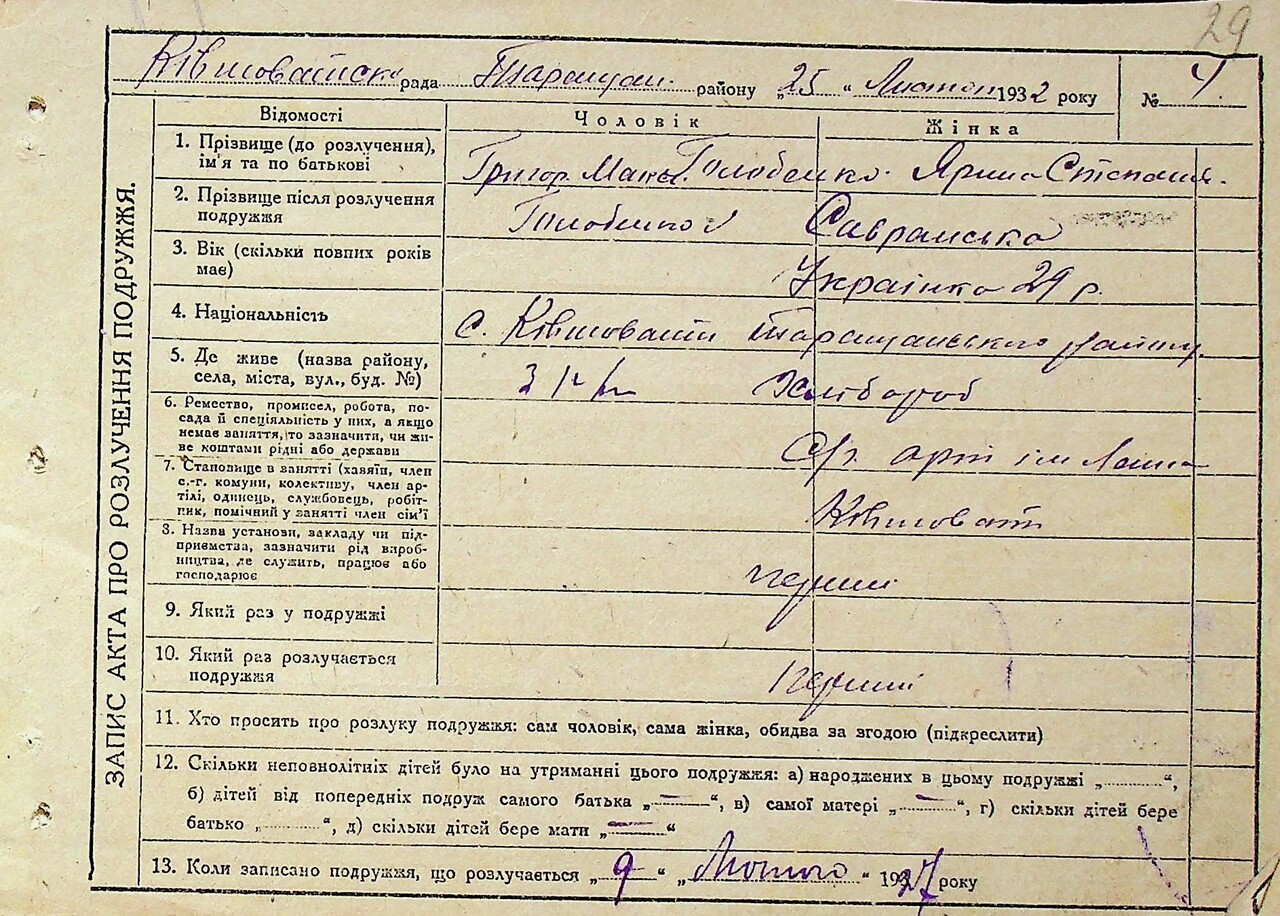 29
Ківшоватська рада Таращан. району „25“ Листоп 1932 року № 4
ЗАПИС АКТА ПРО РОЗЛУЧЕННЯ ПОДРУЖЖЯ.
Відомості Чоловік Жінка
1. Прізвище (до розлучення), ім'я та по батькові
Григор. Макс. Голобенко. Ярина Степанія.
2. Прізвище після розлучення подружжя
Голобенко Савранська
3. Вік (скільки повних років має)
Українка 29 р.
4. Національність
с. Ківшовати Таращанського району
5. Де живе (назва району, села, міста, вул., буд. №)
Хлібороб
6. Ремество, промисел, робота, по-
сада й спеціяльність у них, а якщо
немає заняття, то зазначити, чи жи-
ве коштами рідні або держави
С/г. арт ім
7. Становище в занятті (хазяїн, член
с.-г. комуни, колективу, член ар-
тілі, одинець, службовець, робіт-
ник, помічний у занятті член сім'ї
Ківшовати
8. Назва установи, закладу чи під-
приємства, зазначити рід вироб-
ництва, де служить, працює або
господарює
перший
9. Який раз у подружжі
10. Який раз розлучається
подружжя
перший
11. Хто просить про розлуку подружжя: сам чоловік, сама жінка, обидва за згодою (підкреслити)
12. Скільки неповнолітніх дітей було на утриманні цього подружжя: а) народжених в цьому подружжі „..........“,
б) дітей від попередніх подруж самого батька „—“, в) самої матері „—“, г) скільки дітей бере
батько „..........“, д) скільки дітей бере мати „—“
13. Коли записано подружжя, що розлучається „9“ „Лютого“ 1927 року